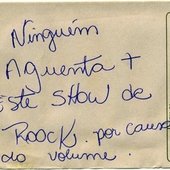 Ninguém
Aguenta +
Este SHOW de
ROOCK. por causa
do volume.